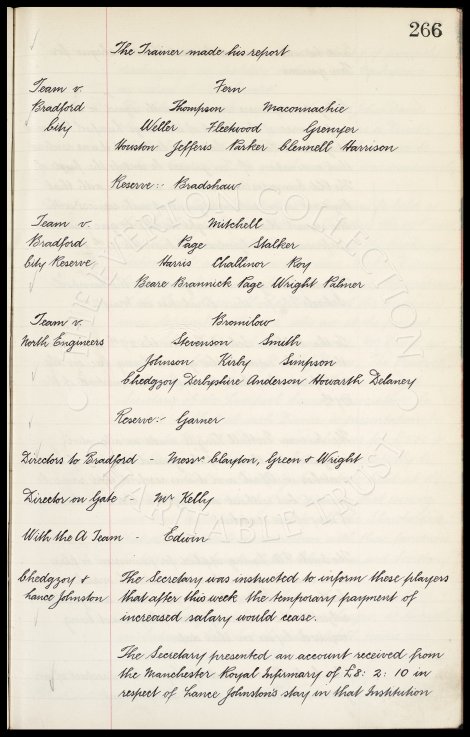 266
The Trainer made his report
Team v. Fern
Bradford Thompson Maconnachie
City Weller Fleetwood Grenyer
Houston Jefferis Parker Clennell Harrison
Reserve:- Bradshaw
Team v. Mitchell
Bradford Page Stalker
City Reserve Harris Challinor Roy
Beare Brannick Page Wright Palmer
Team v. Bromilow
North Engineers Stevenson Smith
Johnson Kirby Simpson
Chedgzoy Derbyshire Anderson Howarth Delaney
Reserve:- Garner
Directors to Bradford - Messrs Clayton, Green & Wright
Director on Gate - Mr Kelly
With the A Team - Edwin
Chedgzoy & The Secretary was instructed to inform these players
Lance Johnston that after this week the temporary payment of
increased salary would cease.
The Secretary presented an account received from
the Manchester Royal Infirmary of £8: 2: 10 in
respect of Lance Johnston's stay in that Institution
THE EVERTON COLLECTION
CHARITABLE TRUST